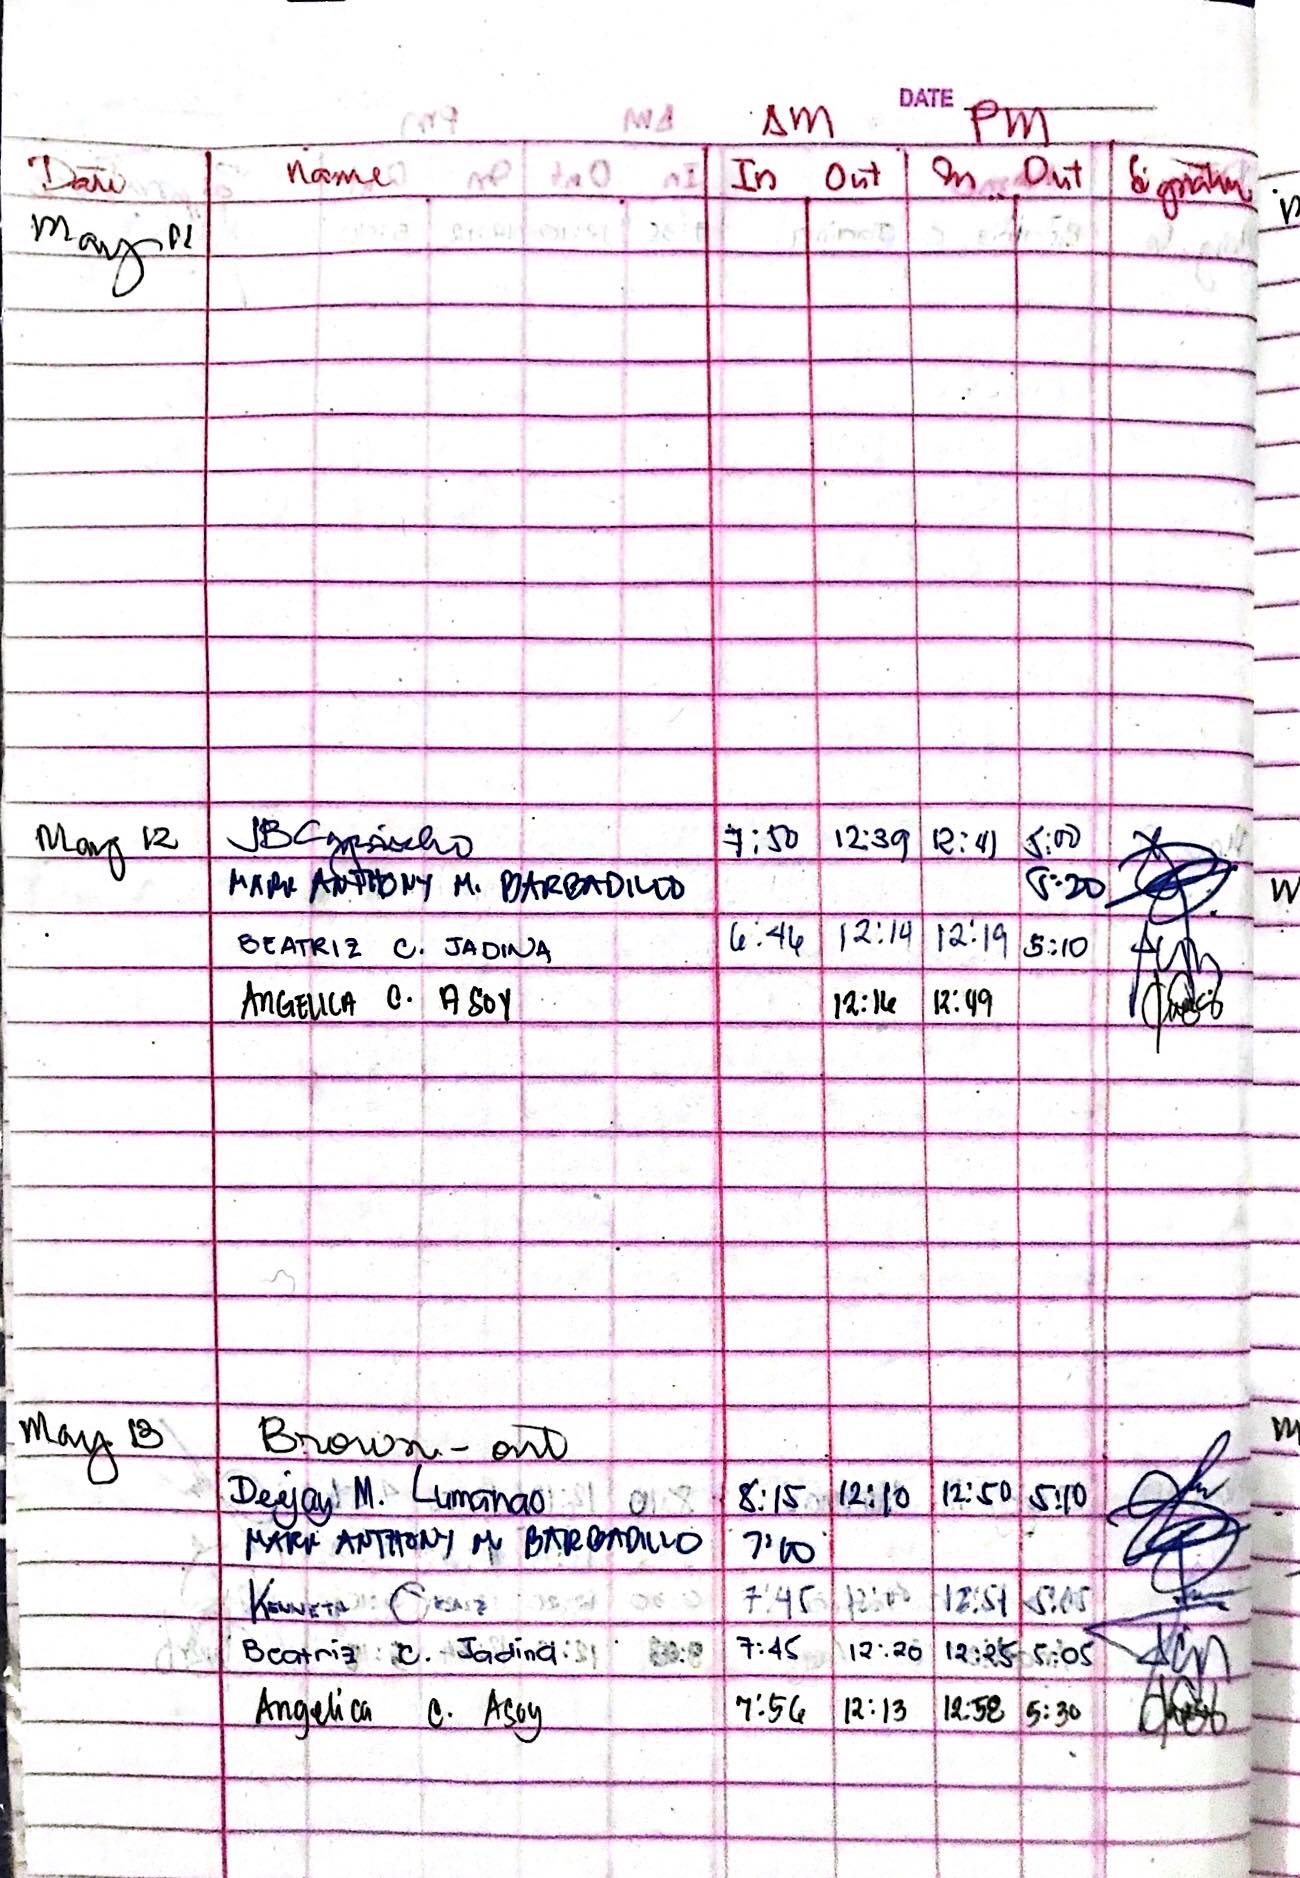 DATE
AM PM
Date Name In Out In Out Signature
May
May 12 7:50 12:39 12:41 5:00
MARK ANTHONY M. BARBADILLO 5:20
BEATRIZ C. JADINA 6:46 12:14 12:19 5:10
ANGELICA C. ASOY 12:16 12:49
May 13 Brown-out
Deejay M. Lumanao 8:15 12:10 12:50 5:10
MARK ANTHONY M. BARBADILLO 7:00
KENNETH 7:45 12:51
Beatriz C. Jadina 7:45 12:20 12:25 5:05
Angelica C. Asoy 7:56 12:13 12:58 5:30